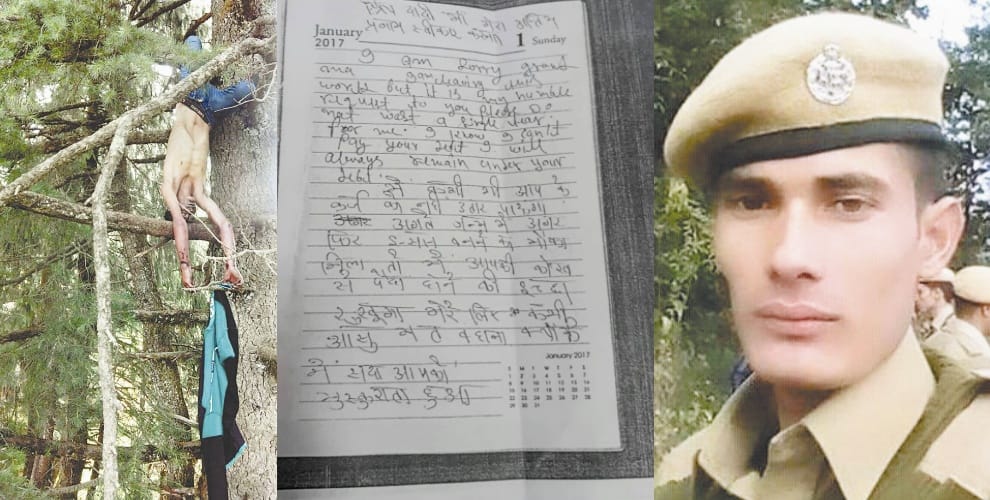 दादी माँ मेरा अन्तिम
प्रणाम स्वीकार करना
January 1 Sunday
2017
I am Sorry grand
ma I am leaving this
world but it is my humble
request to you please Do
not west a single tear
for me. I know I can't
pay your debt I will
always remain under your
debt.
मैं कभी भी आप के
कर्ज को नहीं उतार पाऊंगा
अगले जन्म में अगर
फिर इन्सान बनने का मौका
मिला तो मैं आपकी कोख
से पैदा होने की इच्छा
रखूंगा मेरे लिए कभी
आंसु मत बहाना क्योंकि
मैं सदा आपको
मुस्कुराता हुआ
January 2017
S M T W T F S
1 2 3 4 5 6 7
8 9 10 11 12 13 14
15 16 17 18 19 20 21
22 23 24 25 26 27 28
29 30 31